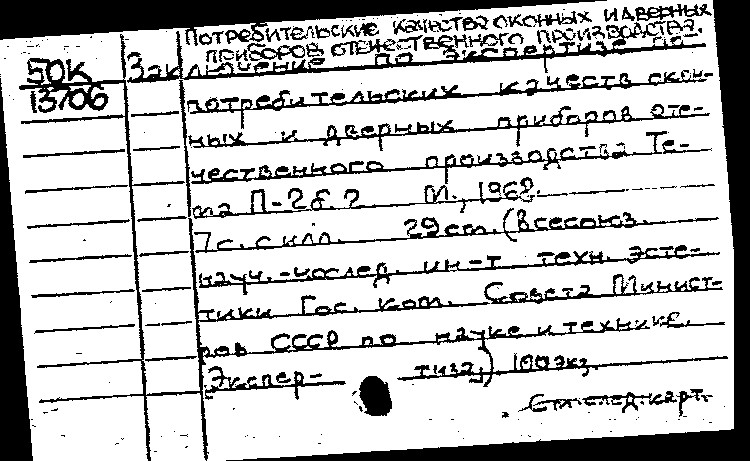 Потребительские качества оконных и дверных
приборов отечественного производства.
50К
13706
Заключение по экспертизе по-
потребительских качеств окон-
ных и дверных приборов оте-
чественного производства. Те-
ма П-26.2 М., 1968.
7с. с илл. 29 cm. (Всесоюз.
науч.-исслед. ин-т техн. эсте-
тики Гос. ком. Совета Минист-
ров СССР по науке и технике.
Экспер- тиза,). 100 экз.
См. след. карт.